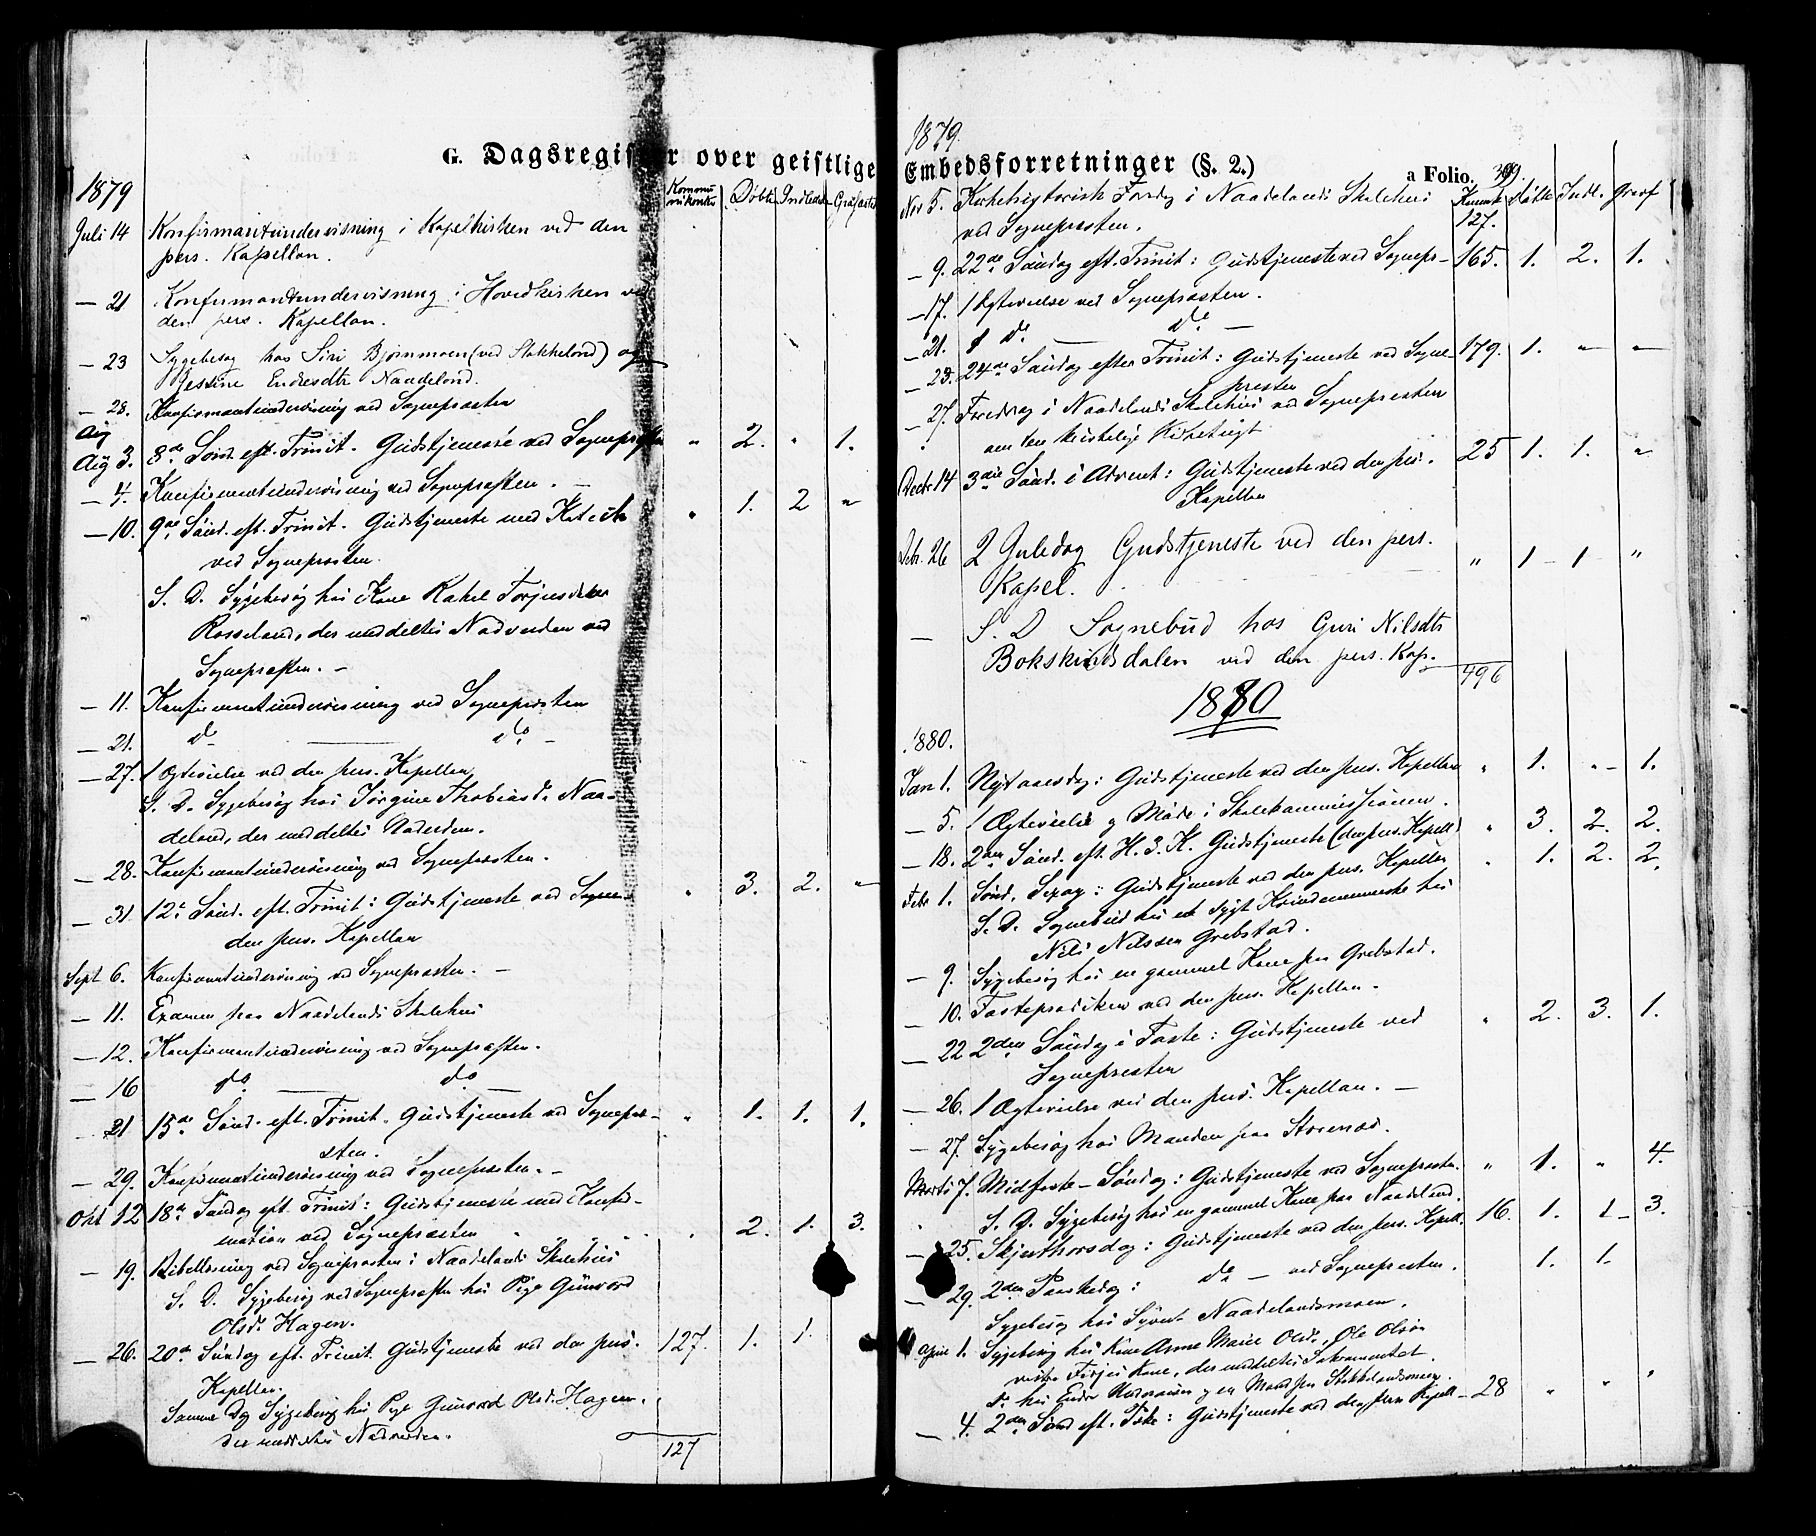 G. Dagsregister over geistlige
1879
Kommunikanter Døbte Indledte Gräfæstede
Juli 14 Konfirmantundervisning i Kapelkirken ved den
pers. Kapellan.
— 21 Konfirmantundervisning i Hovedkirken ved
den pers. Kapellan.
— 23 Sygebesøg hos Siri Bjørnmoen (ved Stokkeland) og
Jessine Endresdtr Naadeland.
— 28. Konfirmantundervisning ved Sognepræsten
Aug
Aug 3. 8de Sønd. eft. Trinit. Gudstjeneste ved Sognepræsten " 2. " 1.
— 4. Konfirmantundervisning ved Sognepræsten. —
— 10. 9de Sønd. eft. Trinit. Gudstjeneste med Katekis " 1. 2 "
ved Sognepræsten.
S. D. Sygebesøg hos Kone Rakel Torjusdatter
Rosseland, der meddeltes Nadverden ved
Sognepræsten. —
— 11. Konfirmantundervisning ved Sognepræsten
— 21. do — do —
— 27. 1 Ægtevielse ved den pers. Kapellan
S. D. Sygebesøg hos Jørgine Thobiasd. Naa-
deland, der meddeltes Naderden.
— 28. Konfirmantundervisning ved Sognepræsten.
— 31. 12te Sønd. eft. Trinit: Gudstjeneste ved Sogne " 3. 2. "
den pers. Kapellan
Sept 6. Konfirmantundervisning ved Sognepræsten. —
— 11. Examen paa Naadelands Skolehus
— 12. Konfirmantundervisning ved Sognepræsten.
— 16 do — do —
21 15de Sønd. eft. Trinit. Gudstjeneste ved Sognepræ- " 1. 1. 1.
sten.
— 29. Konfirmantundervisning ved Sognepræsten. —
Okt 12 18de Søndag eft. Trinit: Gudstjeneste med Konfir-
mation ved Sognepræsten " 2. 1. 3.
— 19. Bibellæsning ved Sognepræsten i Naadelands Skolehus
S. D. Sygebesøg ved Sognepræsten hos Pige Gunvord
Olsd. Hagen.
— 26. 20de Søndag eft. Trinit. Gudstjeneste ved den pers. 127. 1. 1.
Kapellan.
Samme Dag Sygebesøg hos Pige Gunvord Olsd. Hagen.
der meddeltes Nadverden.
127
1879.
Embedsforretninger (§. 2.) a Folio. 399.
Kommk Døbte Indl. Græsf
Nov 5. Kirkehistorisk Foredrag i Naadelands Skolehus 127.
ved Sognepræsten.
— 9. 22de Søndag eft. Trinit: Gudstjeneste ved Sognepr— 165. 1. 2. 1.
— 17. 1 Ægtevielse ved Sognepræsten.
— 21. 1 do do —
— 23. 24de Søndag efter Trinit: Gudstjeneste ved Sogne- 179. 1. " "
præsten
— 27. Foredrag i Naadelands Skolehus ved Sognepræsten
om den kristelige Kirketugt
Decbr. 14 3die Sønd. i Advent: Gudstjeneste ved den pers. 25 1. 1. "
Kapellan
Debr. 26 2 Juledag Gudstjeneste ved den pers. " 1 — 1 "
Kapel.
— S. D Sognebud hos Guri Nilsdtr
Bokskindsdalen ved den pers. Kap.
496
1880
1880.
Jan 1. Nytaarsdag: Gudstjeneste ved den pers. Kapellan " 1. " 1.
— 5. 1 Ægtevielse og Møde i Skolekommissionen.
— 18. 2den Sønd. eft. H. 3. K. Gudstjeneste (den pers. Kapell) " 3. 2. 2.
Febr 1. Sønd. Sexag: Gudstjeneste ved den pers. Kapellan " 1. 2. 2.
S. D. Sognebud hos et sygt Kvindemenneske hos
Nils Nilssen Grebstad.
— 9. Sygebesøg hos en gammel Kone paa Grebstad.
— 10. Fastepræken ved den pers. Kapellan.
— 22 2den Søndag i Faste: Gudstjeneste ved " 2. 3. 1.
Sognepræsten
— 26. 1 Ægtevielse ved den pers. Kapellan. —
— 27. Sygebesøg hos Manden paa Storenæs.
Marts 7. Midfaste-Søndag: Gudstjeneste ved Sognepræsten. " 1. " 4.
S. D. Sygebesøg hos en gammel Kone paa Naadeland.
— 25. Skjærthorsdag: Gudstjeneste ved den pers. Kapell. 16. 1. 1 — 3.
— 29. 2den Paaskedag: do — ved Sognepræsten. 1. 1.
Sygebesøg hos Syvert Naadelandsmoen.
April 1. Sygebesøg hos Kone Anne Marie Olsd., Ole Olsøn
Torjus Kone, der meddeltes Sakramentet.
do hos Endre og en Mand paa Stokkelandsmoen
— 4. 2den Sønd eft. Paaske: Gudstjeneste ved den pers Kapell — 28 " " "